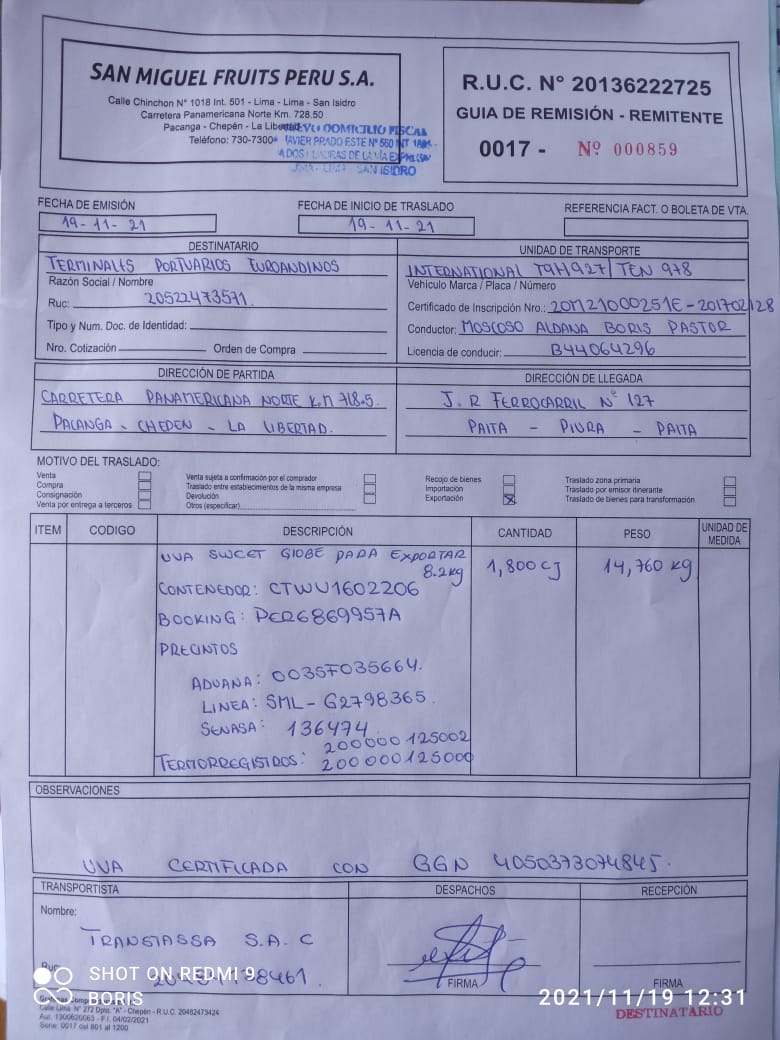 SAN MIGUEL FRUITS PERU S.A.
Calle Chinchon N° 1018 Int. 501 - Lima - Lima - San Isidro
Carretera Panamericana Norte Km. 728.50
Pacanga - Chepén - La Libertad
Teléfono: 730-7300
NUEVO DOMICILIO FISCAL
JAVIER PRADO ESTE N° 560 INT
LIMA - LIMA - SAN ISIDRO
R.U.C. N° 20136222725
GUIA DE REMISIÓN - REMITENTE
0017 - Nº 000859
FECHA DE EMISIÓN
19-11-21
FECHA DE INICIO DE TRASLADO
19-11-21
REFERENCIA FACT. O BOLETA DE VTA.
DESTINATARIO
TERMINALES PORTUARIOS EUROANDINOS
Razón Social / Nombre
Ruc: 20522473571.
Tipo y Num. Doc. de Identidad:
Nro. Cotización Orden de Compra
UNIDAD DE TRANSPORTE
INTERNATIONAL T9H927/TEN 978
Vehículo Marca / Placa / Número
Certificado de Inscripción Nro.: 20M21000251E-201702128
Conductor: MOSCOSO ALDANA BORIS PASTOR
Licencia de conducir: B44064296
DIRECCIÓN DE PARTIDA
CARRETERA PANAMERICANA NORTE K.M 718.5.
PACANGA - CHEPEN - LA LIBERTAD.
DIRECCIÓN DE LLEGADA
J.R FERROCARRIL N° 127
PAITA - PIURA - PAITA
MOTIVO DEL TRASLADO:
Venta
Compra
Consignación
Venta por entrega a terceros
Venta sujeta a confirmación por el comprador
Traslado entre establecimientos de la misma empresa
Devolución
Otros (especificar)
Recojo de bienes
Importación
Exportación X
Traslado zona primaria
Traslado por emisor itinerante
Traslado de bienes para transformación
ITEM CODIGO DESCRIPCIÓN CANTIDAD PESO UNIDAD DE MEDIDA
UVA SWEET GLOBE PARA EXPORTAR
8.2kg 1,800 CJ 14,760 kg
CONTENEDOR: CTWU1602206
BOOKING: PER6869957A
PRECINTOS
ADUANA: 0035F035664.
LINEA: SML-G2798365.
SENASA: 136474
200000125002
TERMORREGISTROS: 200000125000
OBSERVACIONES
UVA CERTIFICADA CON GGN 4050373074845.
TRANSPORTISTA
Nombre:
TRANSTASSA S.A.C
Ruc
DESPACHOS
FIRMA
RECEPCIÓN
FIRMA
SHOT ON REDMI 9
BORIS
2021/11/19 12:31
Calle Lima N° 272 Dpto. "A" - Chepén - R.U.C. 20482473424
Aut. 1300620063 - F.I. 04/02/2021
Serie: 0017 del 801 al 1200
DESTINATARIO